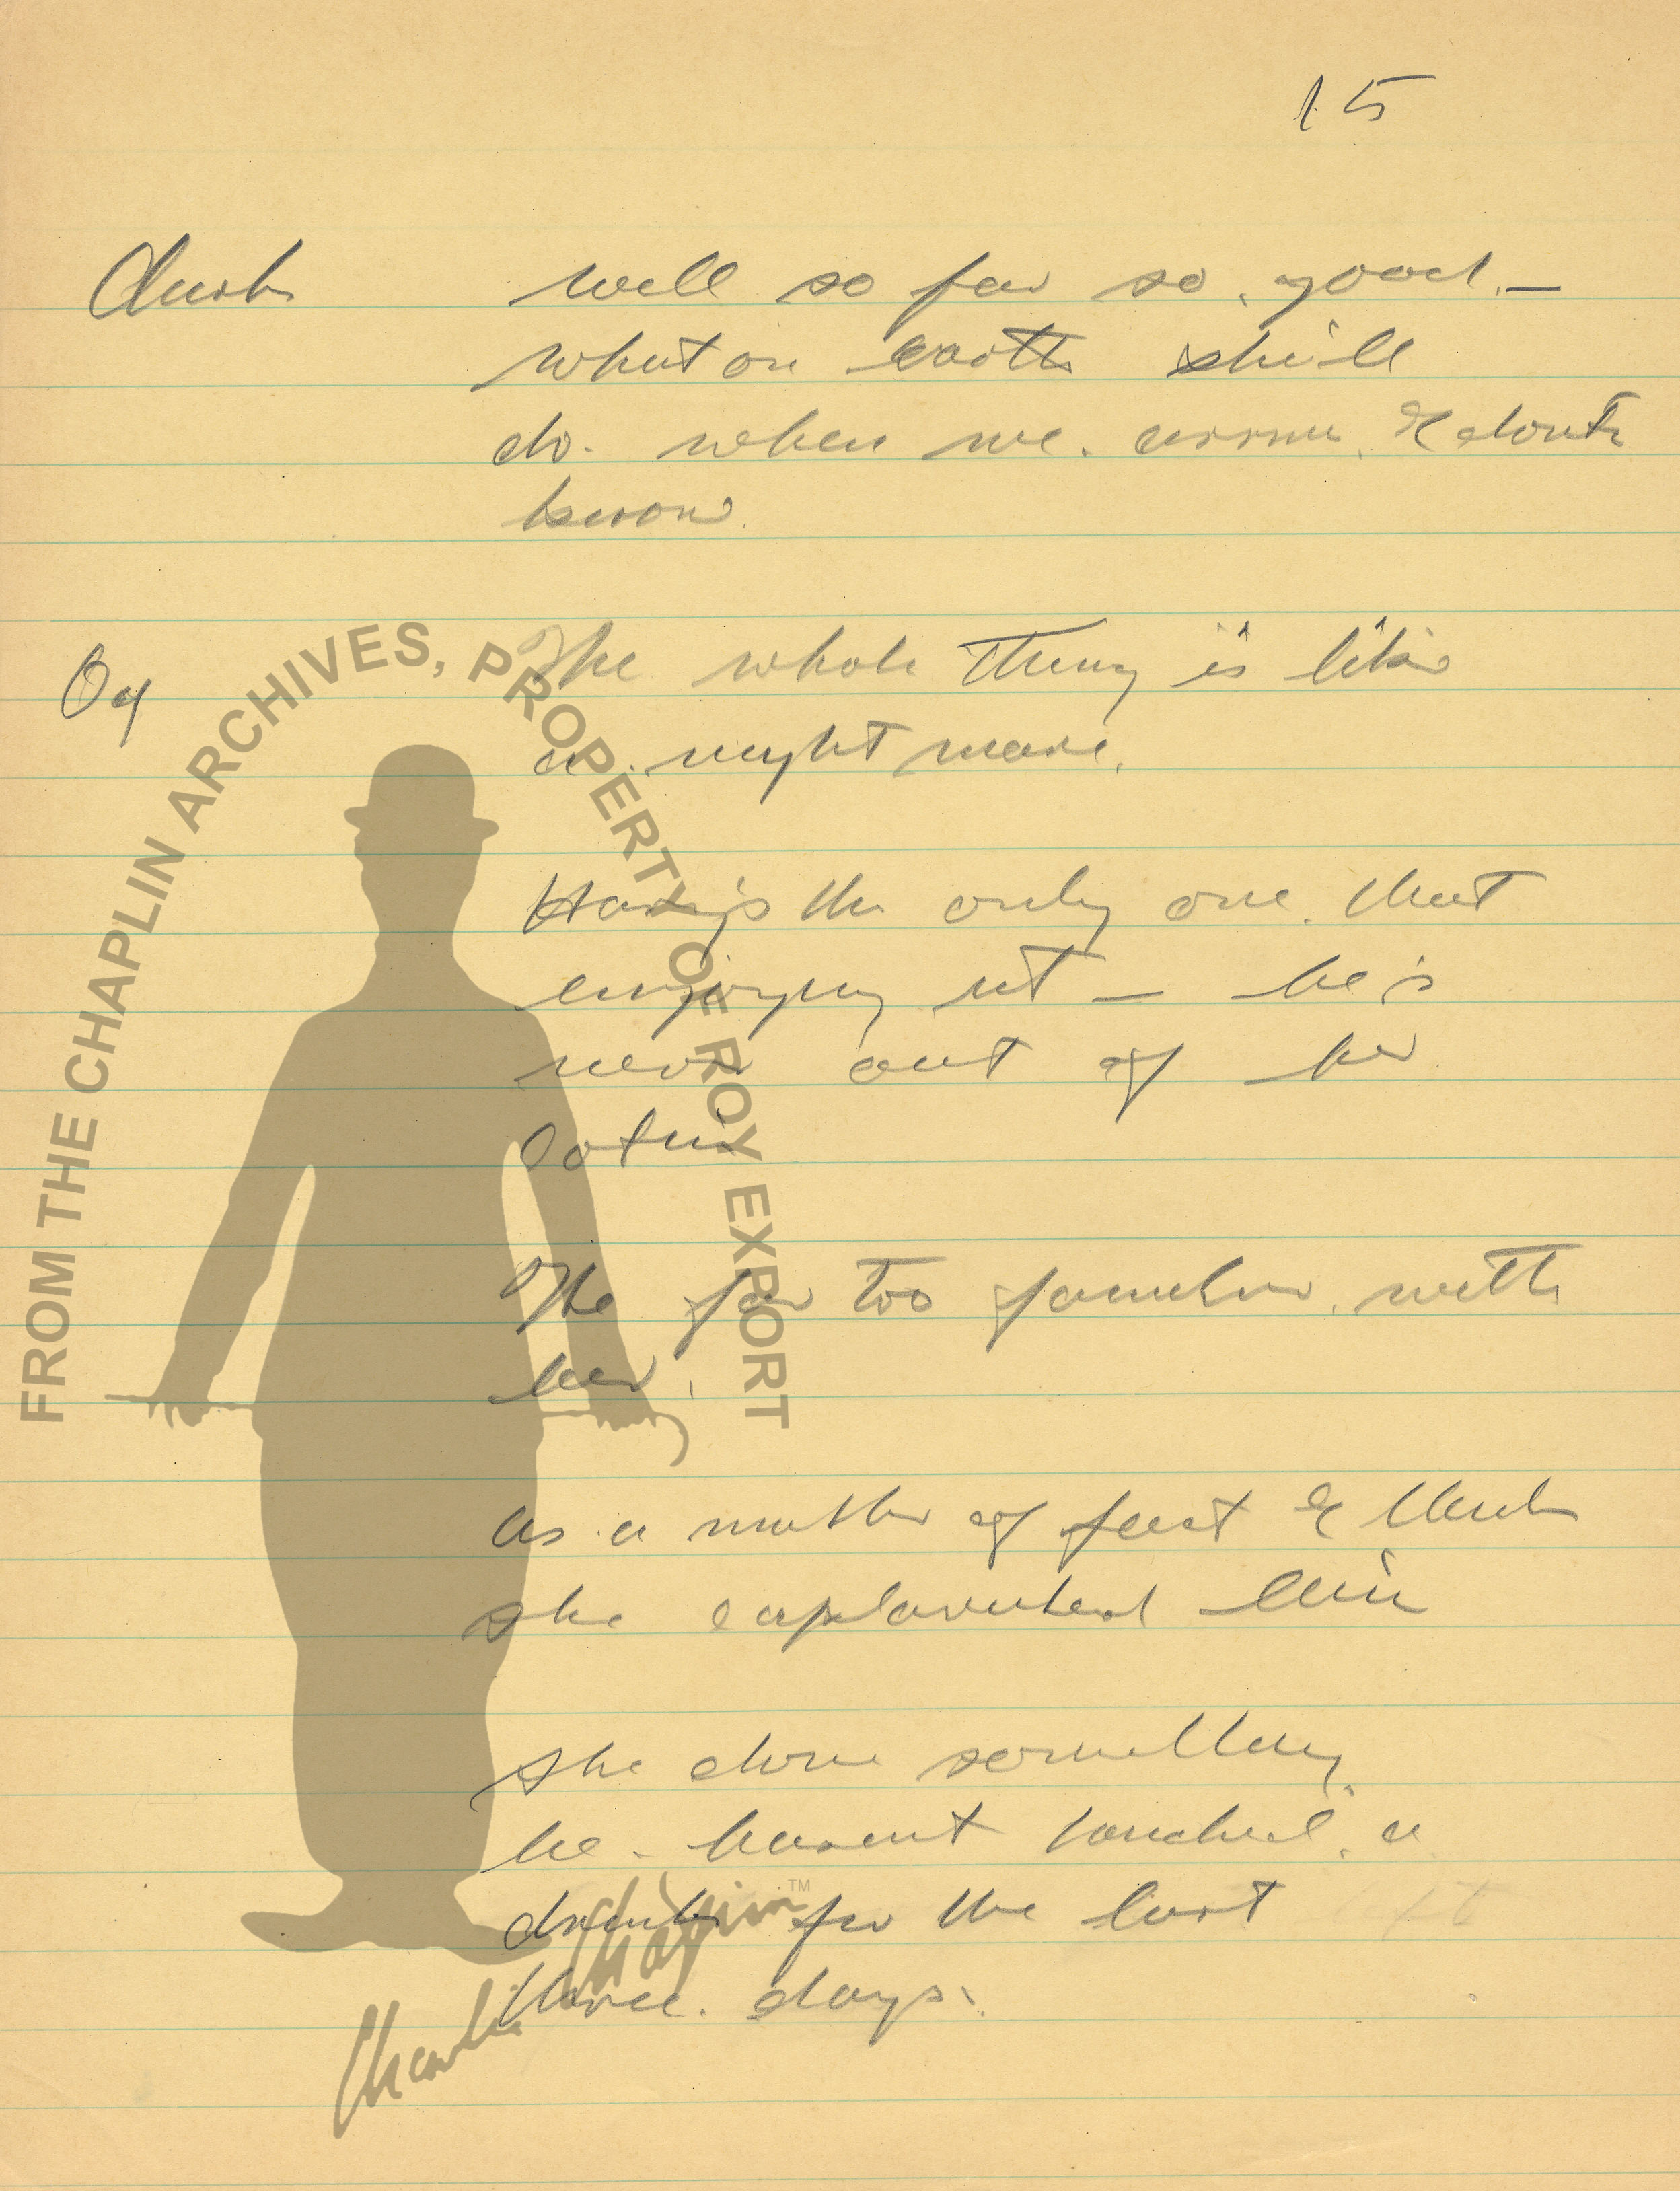 15
Clark well so far so good. —
what on earth she'll
do. when we. arrive. I dont
know.
Og The whole thing is like
a. night mare.
Harry's the only one. that
enjoying it — he's
never out of her
The far too familiar. with
her.
as a matter of fact I think
she
She done something.
he. hasent touched. a
drink for the last
three. days.
FROM THE CHAPLIN ARCHIVES, PROPERTY OF ROY EXPORT
Charlie Chaplin™